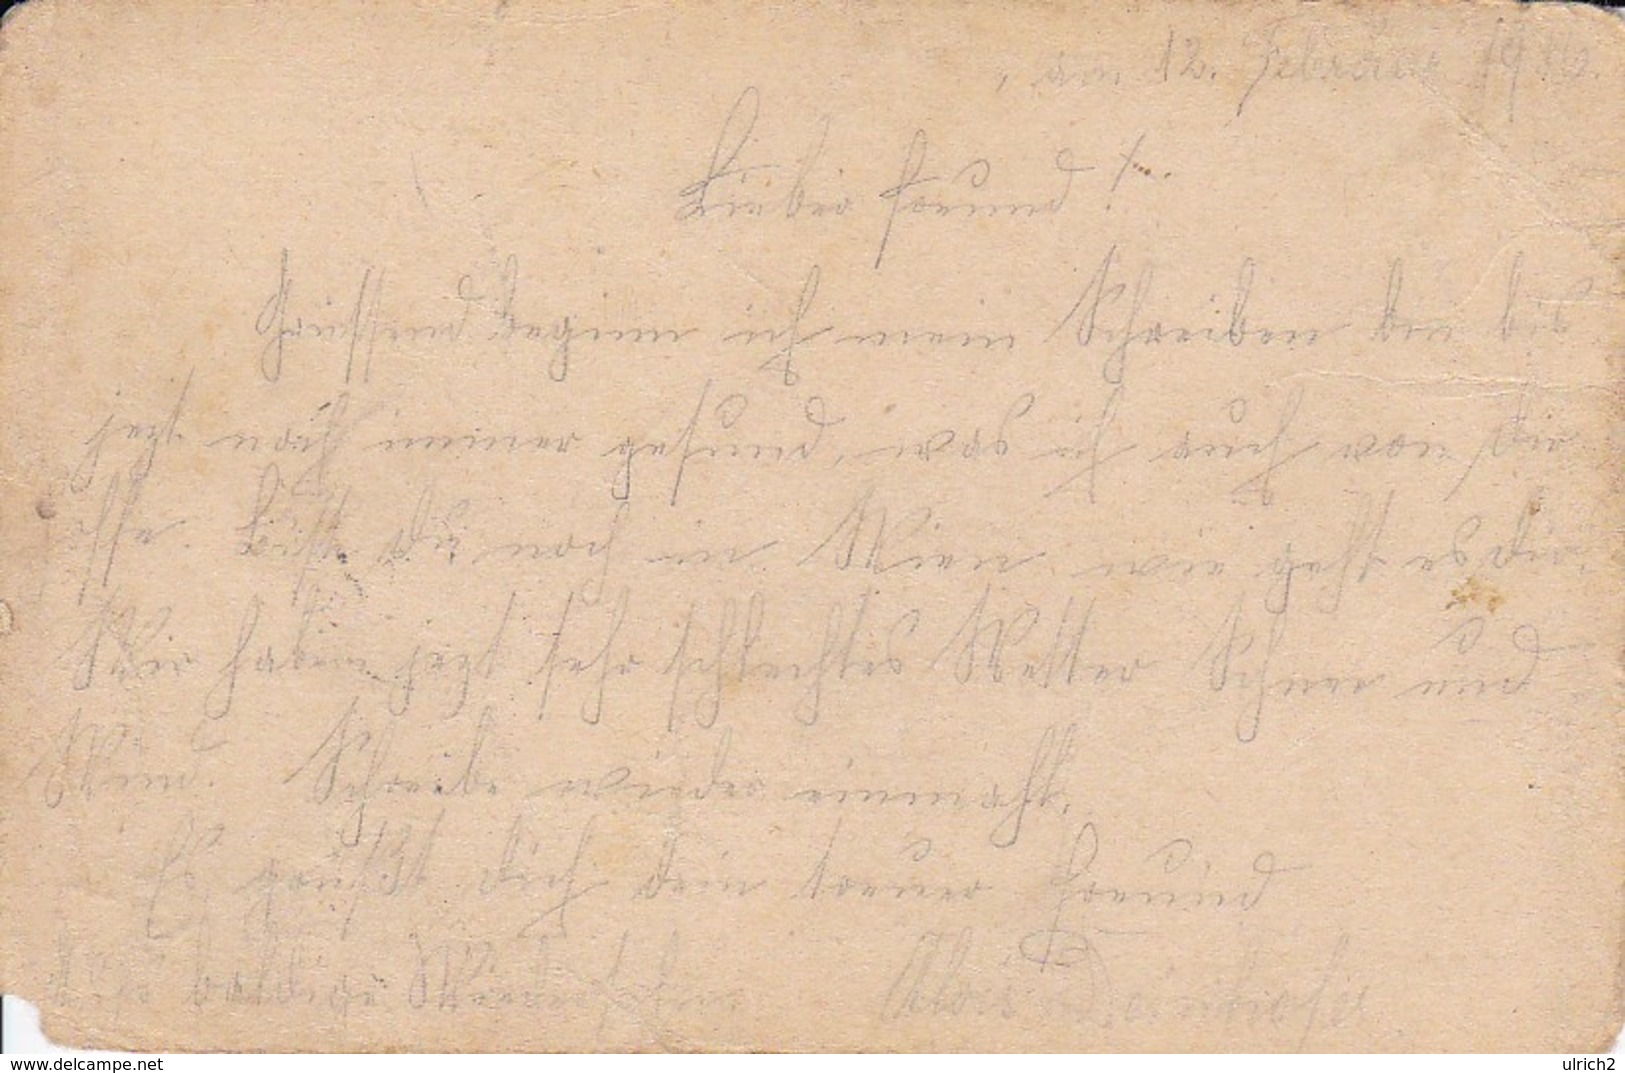 , am 12. Februar 1916.
Lieber Freund!
Grüssend beginn ich mein Schreiben bin bis
jezt noch immer gesund, was ich auch von Dir
hoffe. Bist du noch in Wien wie geht es dir.
Wir haben jezt sehr schlechtes Wetter Schnee und
Wind. Schreibe wieder einmahl.
Es grüßt dich dein treuer Freund
Auf baldige Wiedersehen Alois
© www.delcampe.net
ulrich2